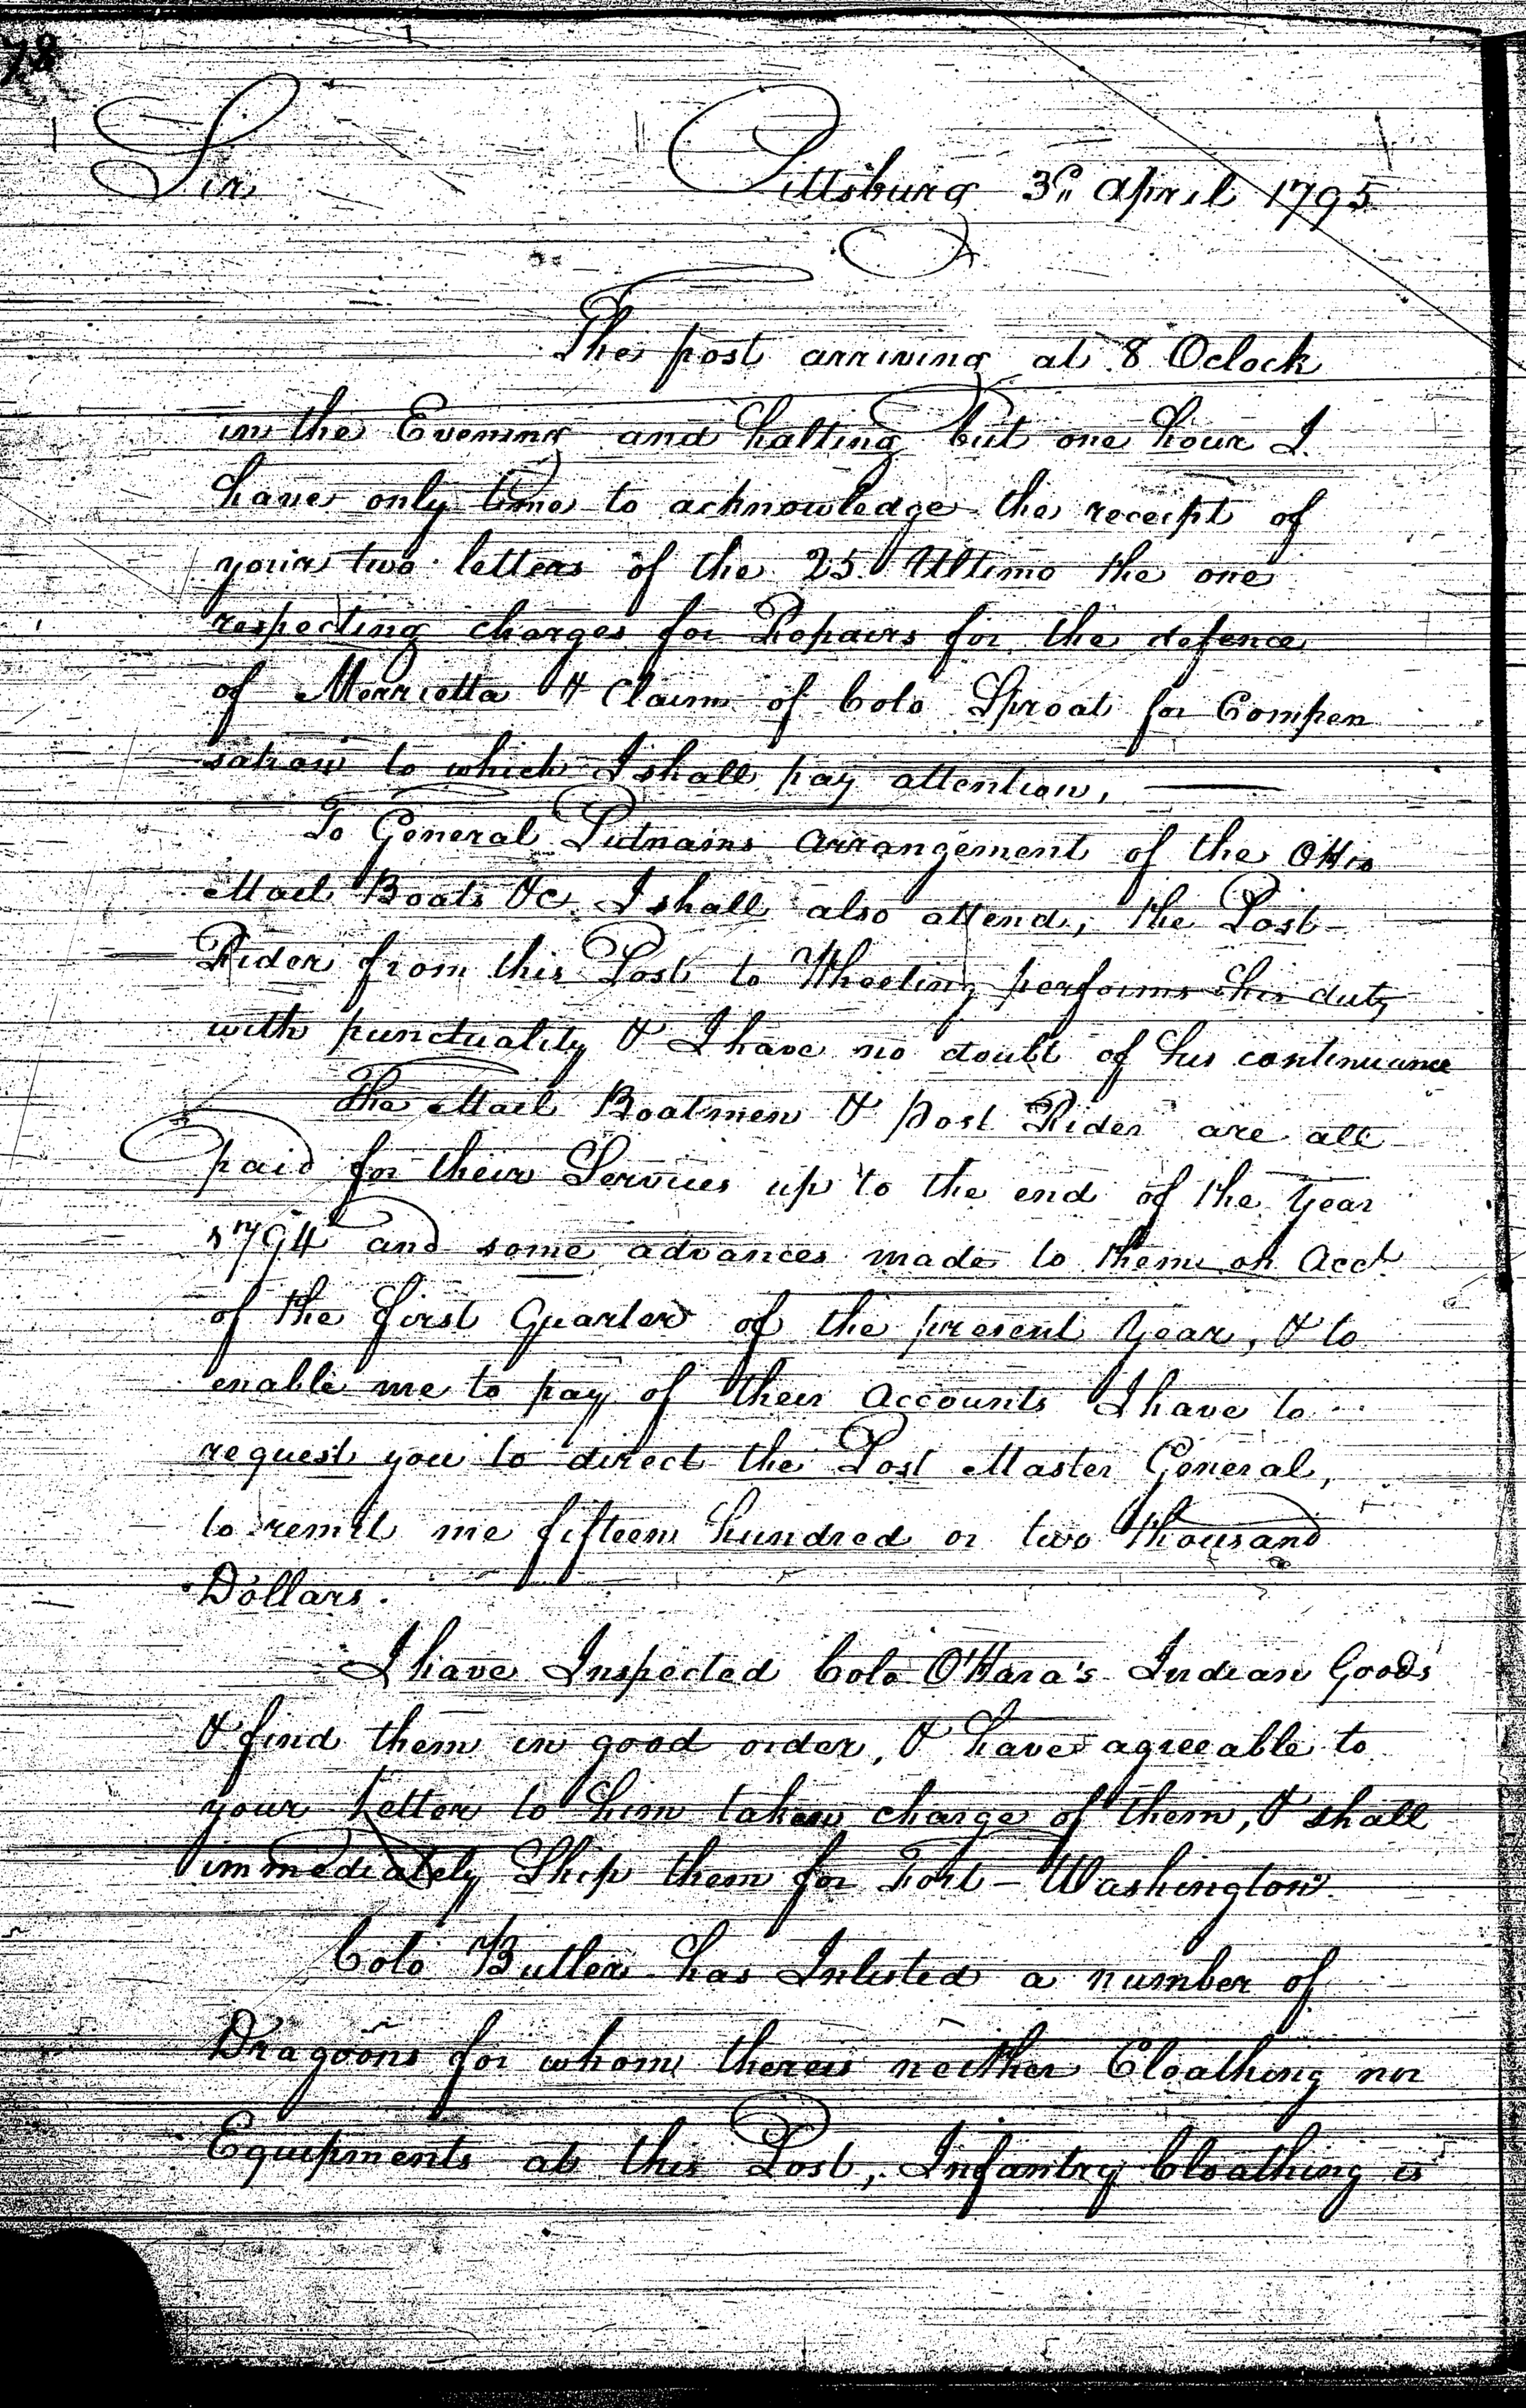 78
Sir Pittsburg 3d April 1795
The post arriving at 8 Oclock
in the Evening and halting but one hour I
have only time to acknowledge the receipt of
your two letters of the 25. Ultimo the one
respecting charges for Repairs for the defence
of Merrietta & Claim of Colo Sproat for Compen
sation to which I shall pay attention,
To General Putnams arrangement of the Ohio
Mail Boats &c. I shall also attend, the Post
Rider from this Post to Wheeling performs his duty
with punctuality & I have no doubt of his continuance
The Mail Boatmen & post Rider are all
paid for their Services up to the end of the Year
1794 and some advances made to them on Acct
of the first Quarter of the present Year, & to
enable me to pay of their Accounts I have to
request you to direct the Post Master General,
to remit me fifteen hundred or two thousand
Dollars.
I have Inspected Colo O'Hara's Indian Goods
& find them in good order, & have agreeable to
your letter to him taken charge of them, & shall
immediately Ship them for Fort-Washington.
Colo Butler has Inlisted a number of
Dragoons for whom there is neither Cloathing nor
Equipments at this Post, Infantry Cloathing is